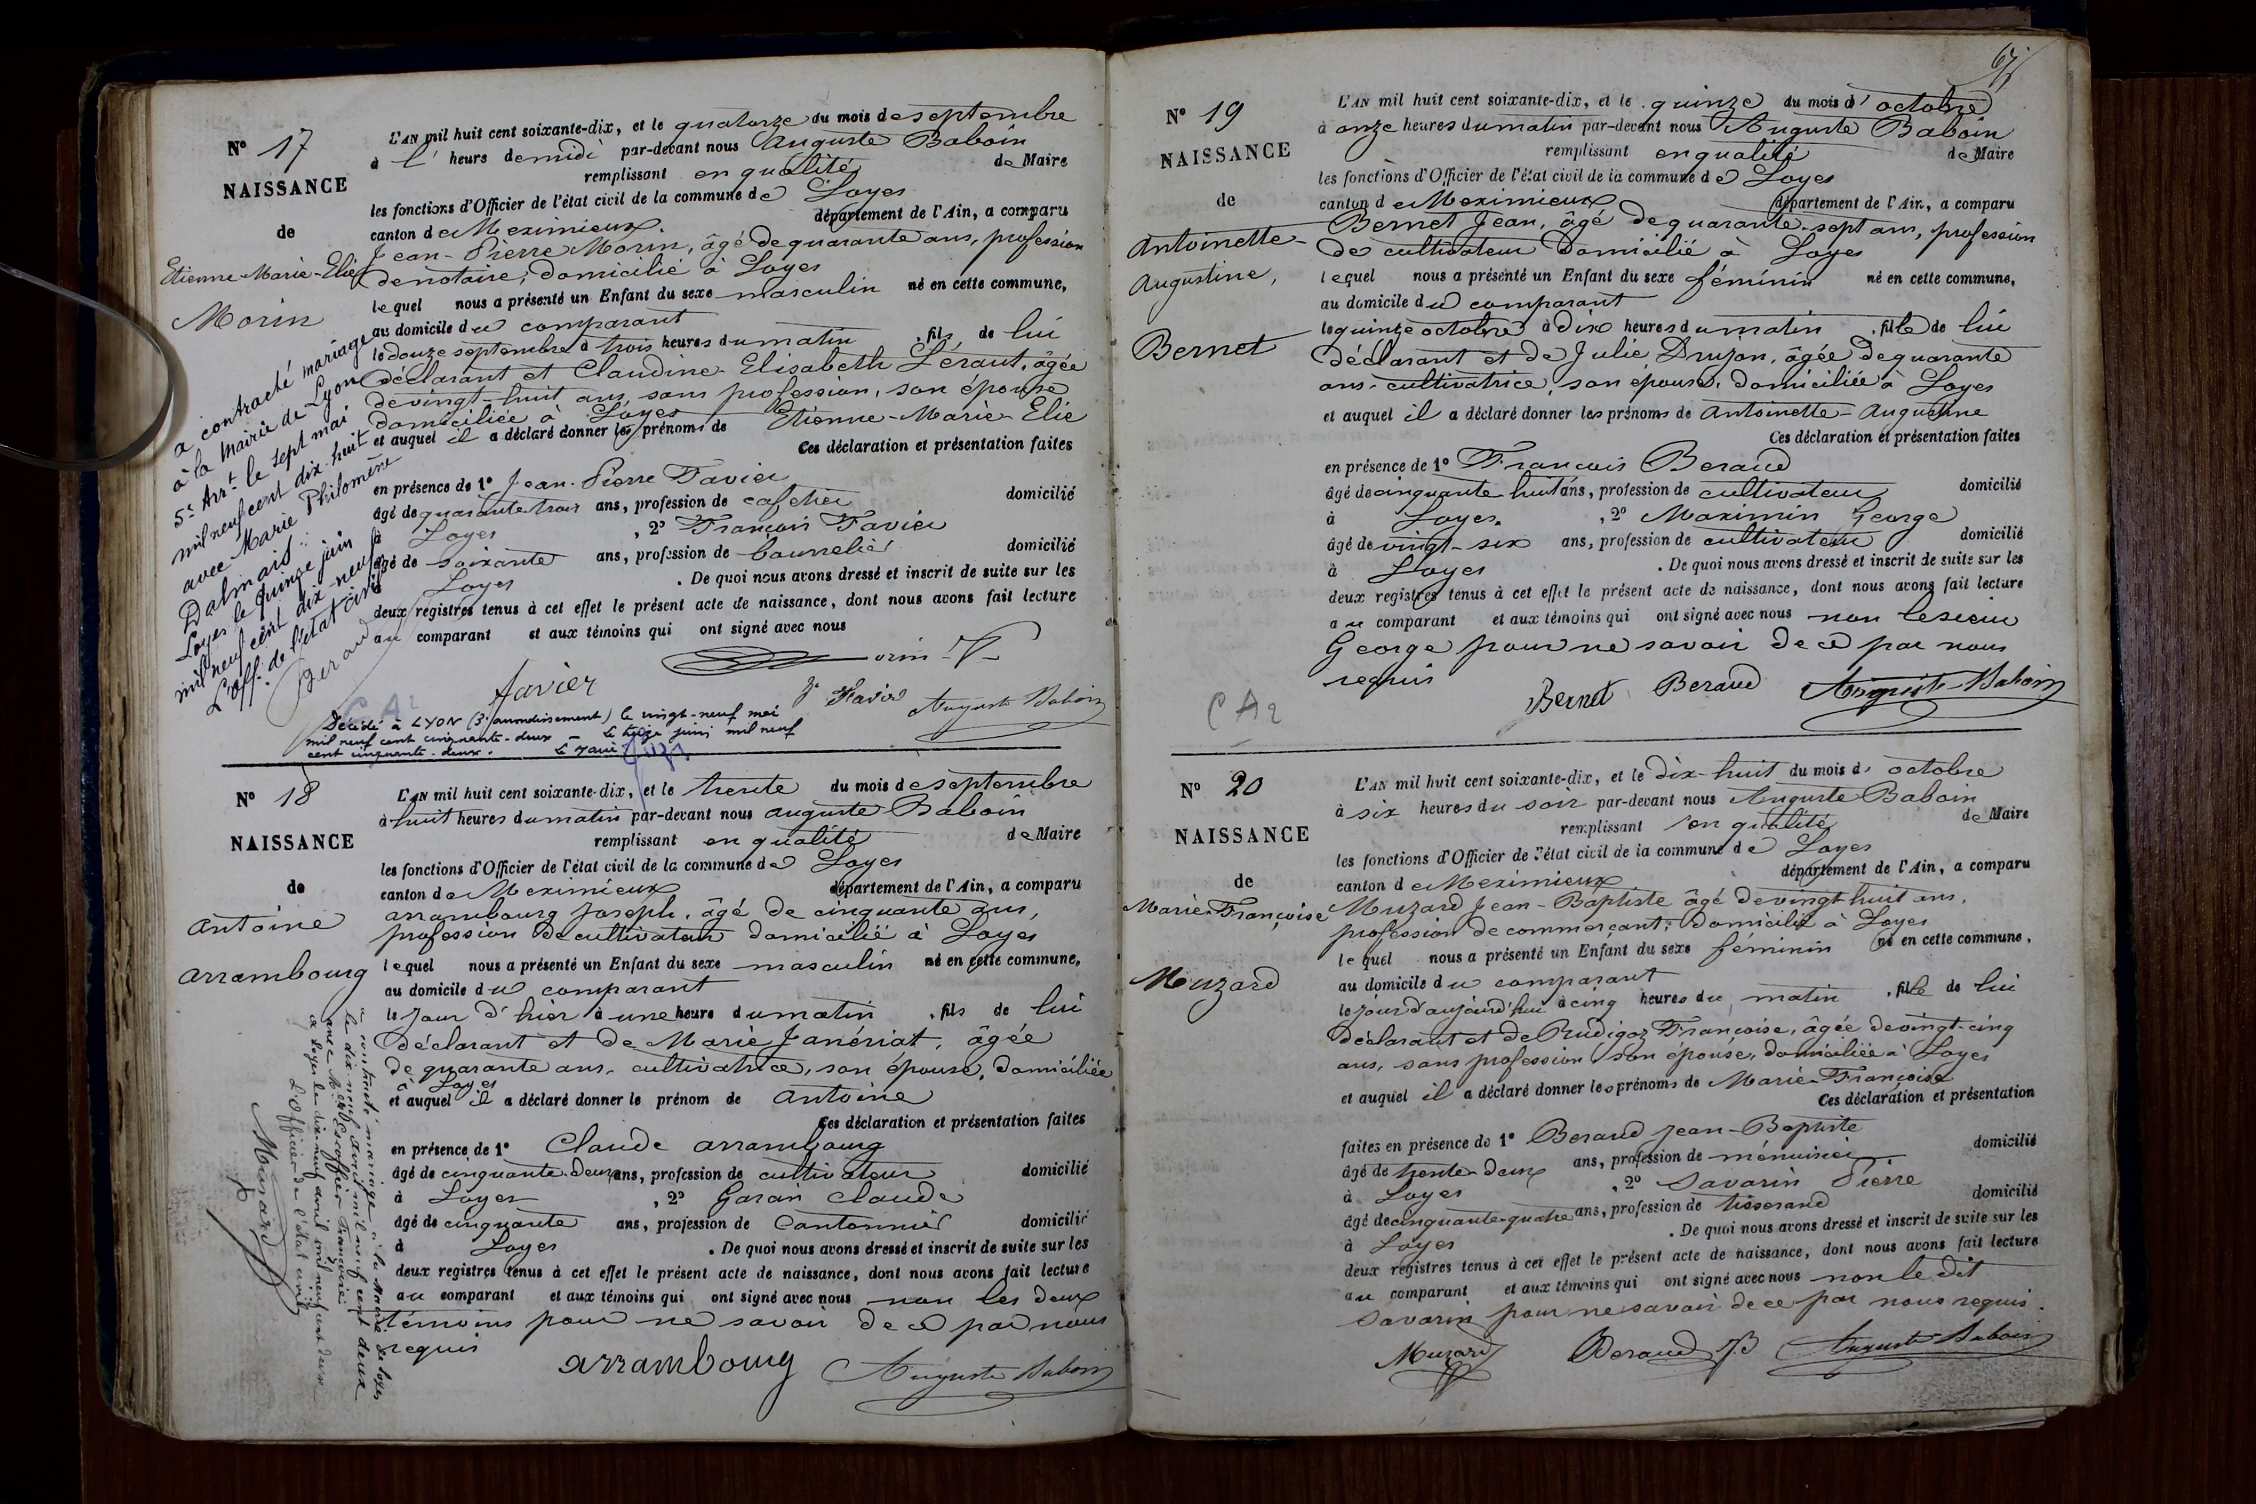 Nº 17
NAISSANCE
de
Etienne-Marie-Elie
Morin
a contracté mariage
à la Mairie de Lyon
5e Arrt le sept mai
mil neuf cent dix-huit
avec Marie Philomène
Dalmais.
Loyes le quinze juin
mil neuf cent dix-neuf
L'off. de l'état civil
Beraud
L'AN mil huit cent soixante-dix, et le quatorze du mois de septembre
à l' heure de midi par-devant nous Auguste Baboin
remplissant en qualité de Maire
les fonctions d'Officier de l'état civil de la commune de Loyes
canton de Meximieux. département de l'Ain, a comparu
Jean-Pierre Morin, âgé de quarante ans, profession
de notaire, domicilié à Loyes
lequel nous a présenté un Enfant du sexe masculin né en cette commune,
au domicile du comparant
le douze septembre à trois heures du matin , fils de lui
déclarant et Claudine-Elisabeth Léraut, âgée
de vingt-huit ans, sans profession, son épouse
domiciliée à Loyes
et auquel il a déclaré donner les prénoms de Etienne-Marie-Elie
Ces déclaration et présentation faites
en présence de 1º Jean-Pierre Favier
âgé de quarante trois ans, profession de cafetier domicilié
à Loyes , 2º François Favier
âgé de soixante ans, profession de bourrelier domicilié
à Loyes . De quoi nous avons dressé et inscrit de suite sur les
deux registres tenus à cet effet le présent acte de naissance, dont nous avons fait lecture
au comparant et aux témoins qui ont signé avec nous
Morin
Favier
Favier Auguste Baboin
CA2
Décédé à LYON (3e arrondissement) le vingt-neuf mai
mil neuf cent cinquante-deux - Le treize juin mil neuf
cent cinquante-deux. Le Maire
Nº 18
NAISSANCE
de
Antoine
Arrambourg
a contracté mariage à la Mairie de Loyes
le dix neuf avril mil neuf cent deux
avec Mlle Escoffier Françoise
à Loyes le dix-neuf avril mil neuf cent deux
L'Officier de l'état civil
Musard
L'AN mil huit cent soixante-dix, et le trente du mois de septembre
à huit heures du matin par-devant nous Auguste Baboin
remplissant en qualité de Maire
les fonctions d'Officier de l'état civil de la commune de Loyes
canton de Meximieux département de l'Ain, a comparu
Arrambourg Joseph, âgé de cinquante ans,
profession de cultivateur domicilié à Loyes
lequel nous a présenté un Enfant du sexe masculin né en cette commune,
au domicile du comparant
le jour d'hier à une heure du matin , fils de lui
déclarant et de Marie Janériat, âgée
de quarante ans, cultivatrice, son épouse, domiciliée
à Loyes
et auquel il a déclaré donner le prénom de Antoine
Ces déclaration et présentation faites
en présence de 1º Claude Arrambourg
âgé de cinquante-deux ans, profession de cultivateur domicilié
à Loyes , 2º Garan Claude
âgé de cinquante ans, profession de Cantonnier domicilié
à Loyes . De quoi nous avons dressé et inscrit de suite sur les
deux registres tenus à cet effet le présent acte de naissance, dont nous avons fait lecture
au comparant et aux témoins qui ont signé avec nous non les deux
témoins pour ne savoir de ce par nous
requis
arrambourg Auguste Baboin
67
Nº 19
NAISSANCE
de
Antoinette-
Augustine,
Bernet
L'AN mil huit cent soixante-dix, et le quinze du mois d'octobre
à onze heures du matin par-devant nous Auguste Baboin
remplissant en qualité de Maire
les fonctions d'Officier de l'état civil de la commune de Loyes
canton de Meximieux département de l'Ain, a comparu
Bernet Jean, âgé de quarante-sept ans, profession
de cultivateur domicilié à Loyes
lequel nous a présenté un Enfant du sexe féminin né en cette commune,
au domicile du comparant
le quinze octobre à dix heures du matin , fille de lui
déclarant et de Julie Drujon, âgée de quarante
ans, cultivatrice, son épouse, domiciliée à Loyes
et auquel il a déclaré donner les prénoms de Antoinette-Augustine
Ces déclaration et présentation faites
en présence de 1º François Beraud
âgé de cinquante huit ans, profession de cultivateur domicilié
à Loyes. , 2º Maximin George
âgé de vingt-six ans, profession de cultivateur domicilié
à Loyes . De quoi nous avons dressé et inscrit de suite sur les
deux registres tenus à cet effet le présent acte de naissance, dont nous avons fait lecture
au comparant et aux témoins qui ont signé avec nous non le sieur
George pour ne savoir de ce par nous
requis
Bernet Beraud Auguste Baboin
CA2
Nº 20
NAISSANCE
de
Marie-Françoise
Muzard
L'AN mil huit cent soixante-dix, et le dix-huit du mois d' octobre
à six heures du soir par-devant nous Auguste Baboin
remplissant en qualité de Maire
les fonctions d'Officier de l'état civil de la commune de Loyes
canton de Meximieux département de l'Ain, a comparu
Muzard Jean-Baptiste âgé de vingt-huit ans,
profession de commerçant, domicilié à Loyes
lequel nous a présenté un Enfant du sexe féminin né en cette commune,
au domicile du comparant
le jour d'aujourd'hui à cinq heures du matin , fille de lui
déclarant et de Rudigoz Françoise, âgée de vingt-cinq
ans, sans profession son épouse, domiciliée à Loyes
et auquel il a déclaré donner les prénoms de Marie-Françoise
Ces déclaration et présentation
faites en présence de 1º Beraud Jean-Baptiste
âgé de trente-deux ans, profession de menuisier domicilié
à Loyes , 2º Savarin Pierre
âgé de cinquante-quatre ans, profession de tisserand domicilié
à Loyes . De quoi nous avons dressé et inscrit de suite sur les
deux registres tenus à cet effet le présent acte de naissance, dont nous avons fait lecture
au comparant et aux témoins qui ont signé avec nous non le dit
Savarin pour ne savoir de ce par nous requis.
Muzard Beraud JB Auguste Baboin